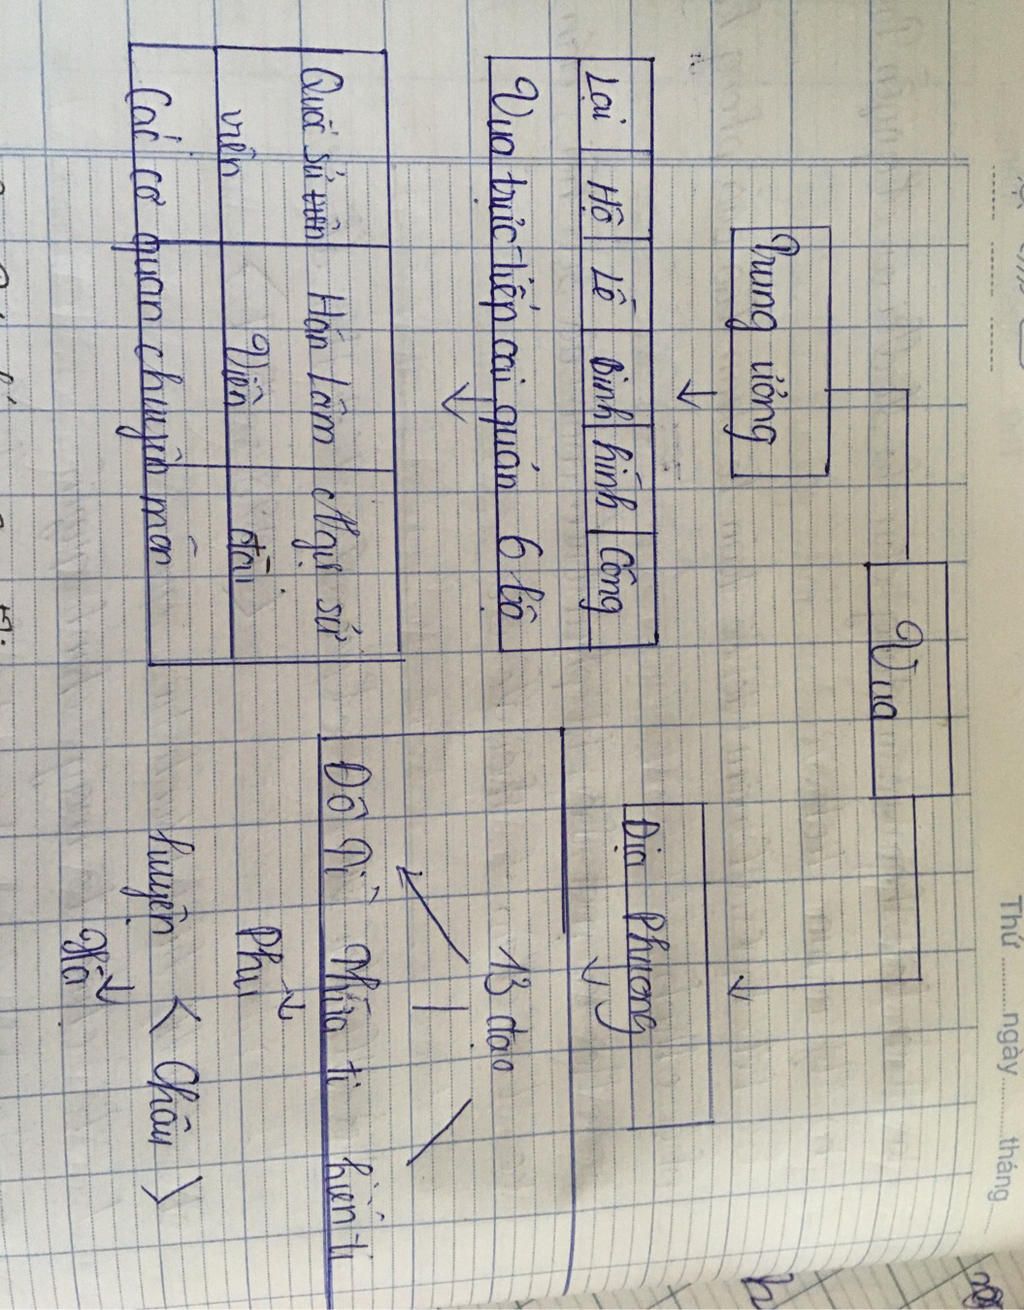 Thứ ngày tháng
Vua
Trung ương
Địa Phương
Lại Hộ Lễ Binh hình Công
Vua trực tiếp cai quản 6 bộ
13 đạo
Đô Ti Thừa ti hiến ti
Quốc sử viện Hàn Lâm Viện Ngự sử đài
Các cơ quan chuyên môn
Phủ
huyện < Châu >
Xã